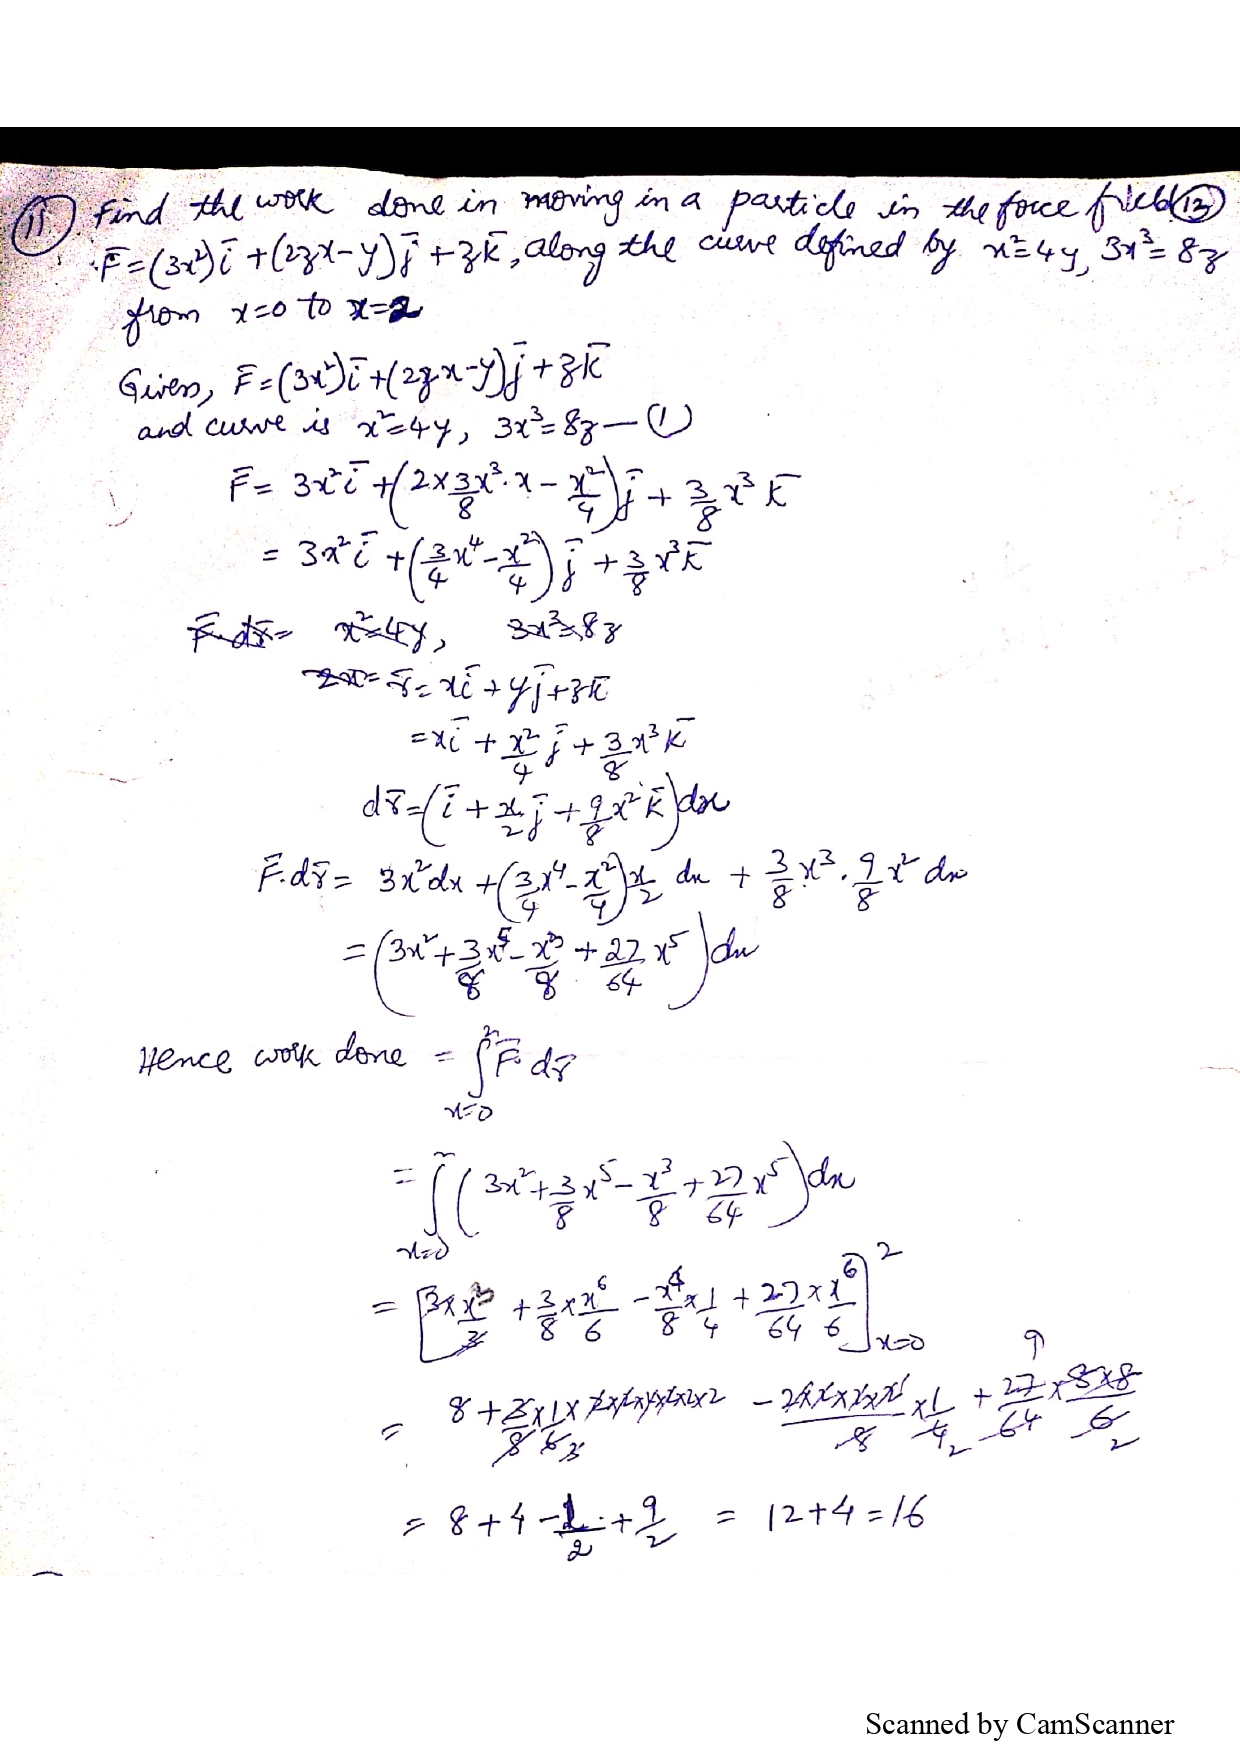 (11) Find the work done in moving in a particle in the force field (13)
F̄=(3x²)ī+(2zx-y)j̄+zk̄, along the curve defined by x²=4y, 3x³=8z
from x=0 to x=2
Given, F̄=(3x²)ī+(2zx-y)j̄+zk̄
and curve is x²=4y, 3x³=8z—(1)
F̄= 3x²ī+(2×3/8x³·x - x²/4)j̄ + 3/8 x³ k̄
= 3x²ī+(3/4x⁴-x²/4)j̄+3/8x³k̄
F̄.dr̄= x²=4y, 3x³=8z
2x= r̄= xī+yj̄+zk̄
=xī+x²/4 j̄+3/8x³k̄
dr̄=(ī+x/2j̄+9/8x²k̄)dx
F̄.dr̄= 3x²dx+(3/4x⁴-x²/4)x/2 dx + 3/8x³.9/8x²dx
=(3x²+3/8x⁵-x³/8+27/64x⁵)dx
Hence work done = ∫²ₓ₌₀ F̄.dr̄
= ∫²ₓ₌₀ (3x²+3/8x⁵-x³/8+27/64x⁵)dx
= [3×x³/3+3/8×x⁶/6-x⁴/8×1/4+27/64×x⁶/6]²ₓ₌₀
= 8+3/8×1/6×2×2×2×2×2×2 - 2×2×2×2/8×1/4+27/64×8×8/6
= 8+4-1/2+9/2 = 12+4=16
Scanned by CamScanner